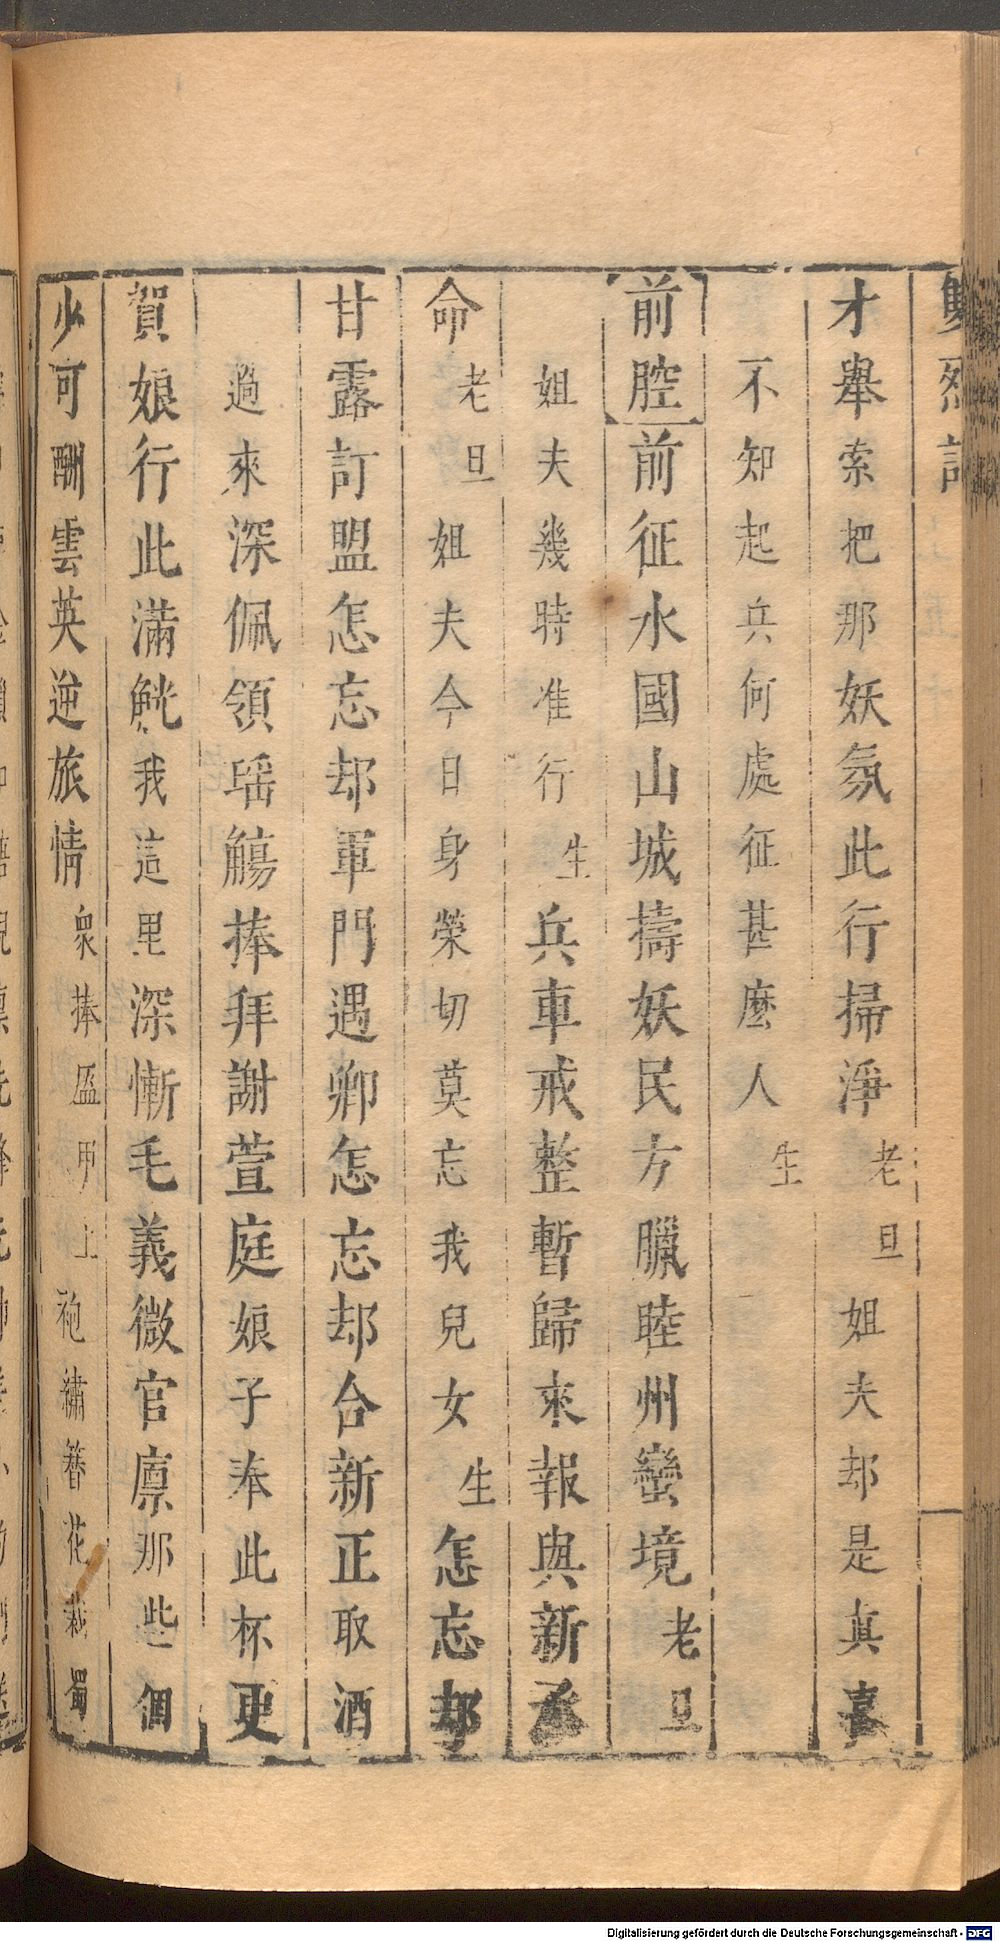 雙烈記
才舉索把那妖氛此行掃淨老旦姐夫却是真喜
不知起兵何處征甚麼人生
前腔前征水國山城擣妖民方臘睦州蠻境老旦
姐夫幾時准行生兵車戒整暫歸來報與新丞
命老旦姐夫今日身榮切莫忘我兒女生怎忘却
甘露訂盟怎忘却軍門遇卿怎忘却合新正取酒
過來深佩領瑶觴捧拜謝萱庭娘子奉此杯更
賀娘行此滿觥我這里深慚毛義微官廪那些個
少可酬雲英逆旅情衆捧盔甲上袍繡簪花蜀
Digitalisierung gefördert durch die Deutsche Forschungsgemeinschaft - DFG